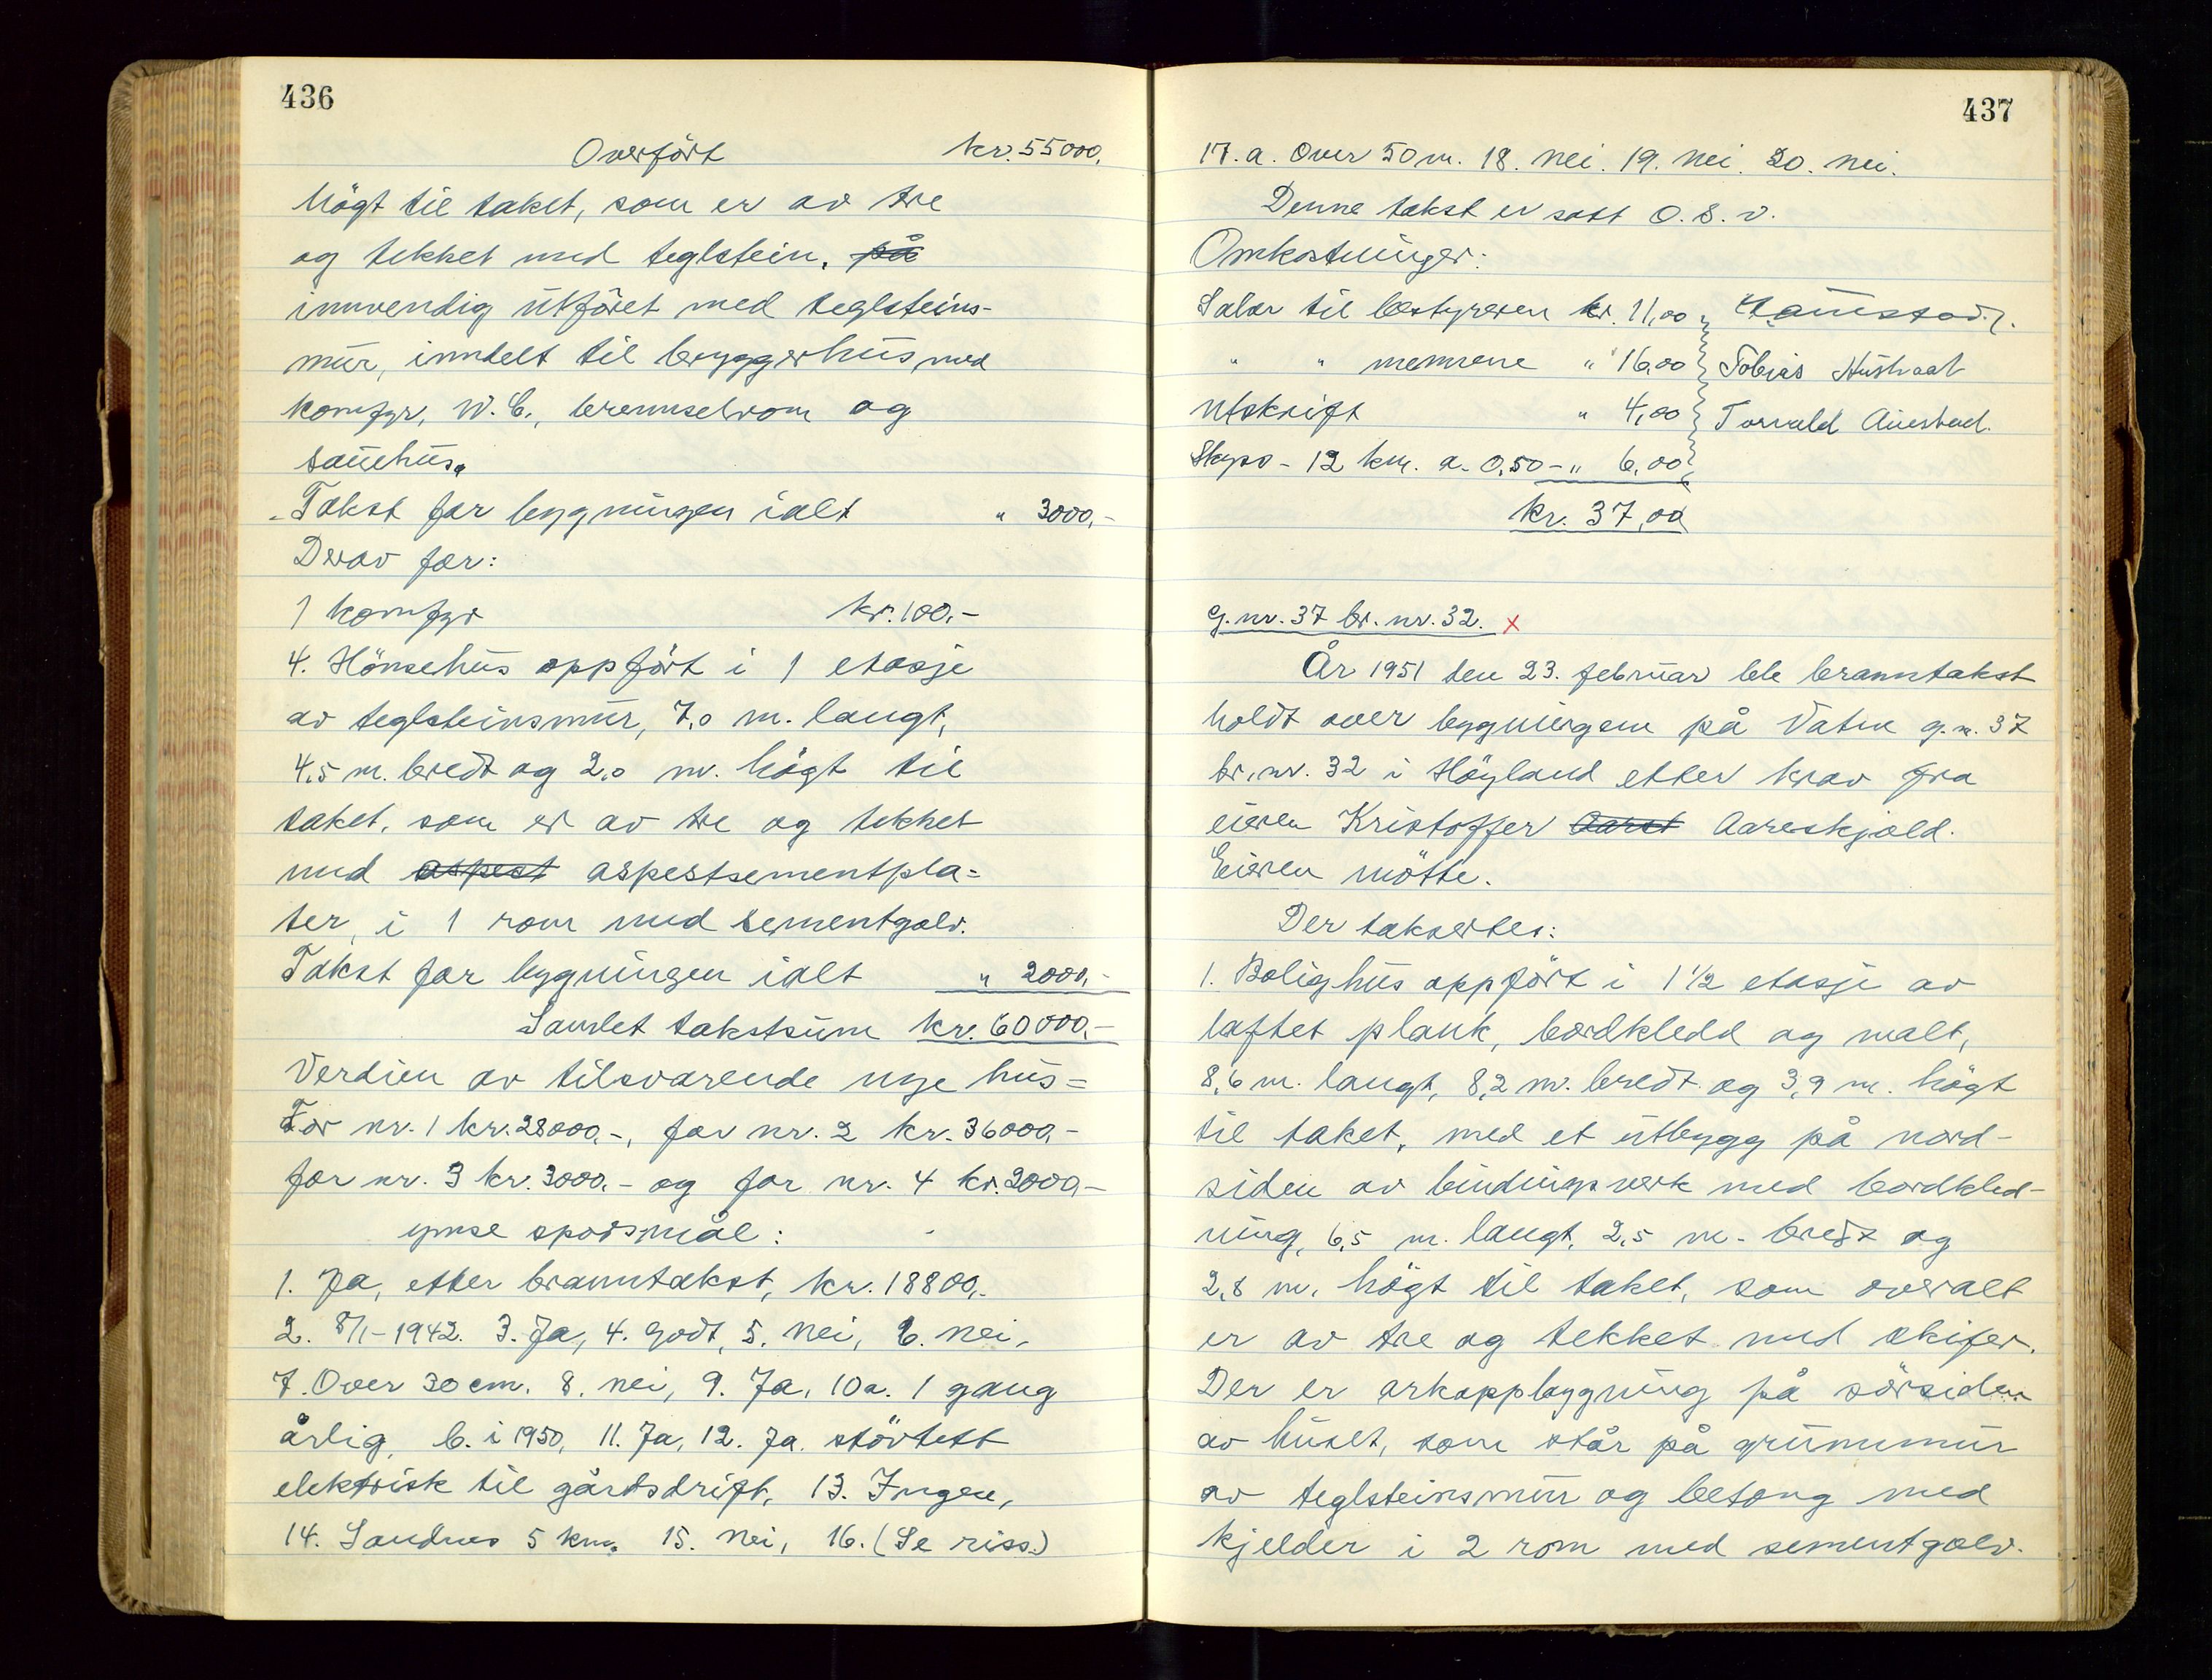 436
Overfört kr. 55000,
högt til taket, som er av tre
og tekket med teglstein, på
innvendig utforet med teglsteins-
mur, inndelt til bryggerhus med
komfyr, W.C., brenselrom og
sauehus.
Takst for bygningen ialt " 3000,-
Derav for:
1 komfyr kr. 100,-
4. Hönsehus oppfört i 1 etasje
av teglsteinsmur, 7,0 m. langt,
4,5 m. bredt og 2,0 m. högt til
taket, som er av tre og tekket
med aspest aspestsementpla=
ter, i 1 rom med sementgolv.
Takst for bygningen ialt " 2000,-
Samlet takstsum kr. 60000,-
Verdien av tilsvarende nye hus=
For nr. 1 kr. 28000,-, for nr. 2 kr. 36000,-
for nr. 3 kr. 3000,- og for nr. 4 kr. 2000,-
ymse sporsmål:
1. Ja, etter branntakst, kr. 18800,-
2. 8/1-1942. 3. Ja, 4. Godt, 5. Nei, 6. Nei,
7. Over 30 cm. 8. nei, 9. Ja, 10a. 1 gang
årlig, b. i 1950, 11. Ja, 12. Ja. störtest
elektrisk til gårdsdrift, 13. Ingen,
14. Sandnes 5 km. 15. Nei, 16. (Se riss.)
437
17. a. Over 50 m. 18. Nei. 19. Nei. 20. Nei.
Denne takst er satt O.s.v.
Omkostninger:
Salær til bestyreren kr. 11,00
" " mennene " 16,00 Tobias
Utskrift " 4,00 Torvald
Skyss - 12 km. a. 0,50 - " 6,00
kr. 37,00
G.nr. 37 br. nr. 32. x
År 1951 den 23. februar ble branntakst
holdt over bygningene på Vatne g.n. 37
br. nr. 32 i Höyland etter krav fra
eieren Kristoffer Aarst Aareskjold.
Eieren mötte.
Der takseres:
1. Bolighus oppfört i 1 1/2 etasje av
laftet plank, bordkledd og malt,
8,6 m. langt, 8,2 m. bredt og 3,9 m. högt
til taket, med et utbygg på nord-
siden av bindingsverk med bordkled-
ning, 6,5 m. langt, 2,5 m. bredt og
2,8 m. högt til taket, som overalt
er av tre og tekket med skifer.
Der er arkoppbygning på sörsiden
av huset, som står på grunnmur
av teglsteinsmur og betong med
kjelder i 2 rom med sementgolv.